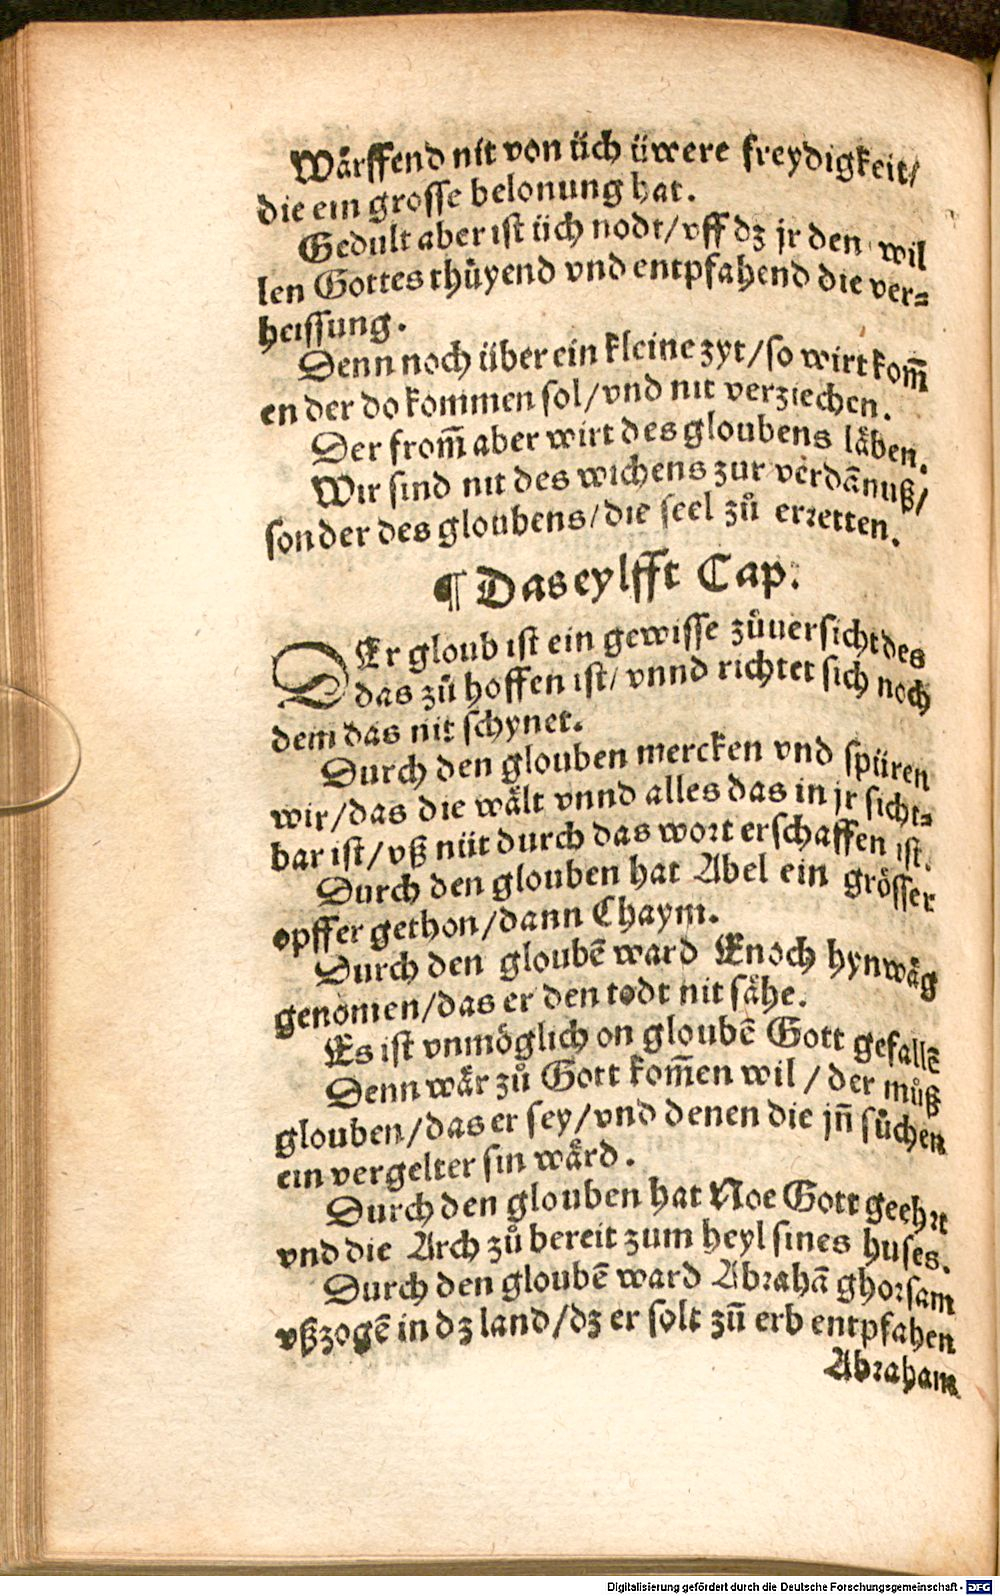 Wårffend nit von üch üwere freydigkeit/
die ein grosse belonung hat.
Gedult aber ist üch nodt/vff dz jr den wil
len Gottes thüyend vnd entpfahend die ver-
heissung.
Denn noch über ein kleine zyt/so wirt kom̃
en der do kommen sol/vnd nit verziechen.
Der from̃ aber wirt des gloubens låben.
Wir sind nit des wichens zur verdãnuß/
sonder des gloubens/die seel zů erretten.
¶ Das eylfft Cap.
DEr gloub ist ein gewisse zůuersicht des
das zů hoffen ist/vnnd richtet sich noch
dem das nit schynet.
Durch den glouben mercken vnd spüren
wir/das die wält vnnd alles das in jr sicht-
bar ist/vß nüt durch das wort erschaffen ist.
Durch den glouben hat Abel ein grösser
opffer gethon/dann Chaym.
Durch den gloubẽ ward Enoch hynwåg
genomen/das er den todt nit såhe.
Es ist vnmöglich on gloubẽ Gott gefallẽ
Denn wår zů Gott kom̃en wil/der můß
glouben/das er sey/vnd denen die jn̄ sůchen
ein vergelter sin wård.
Durch den glouben hat Noe Gott geehrt
vnd die Arch zů bereit zum heyl sines huses.
Durch den gloubẽ ward Abrahã ghorsam
vßzogẽ in dz land/dz er solt zũ erb entpfahen
Abraham
Digitalisierung gefördert durch die Deutsche Forschungsgemeinschaft - DFG